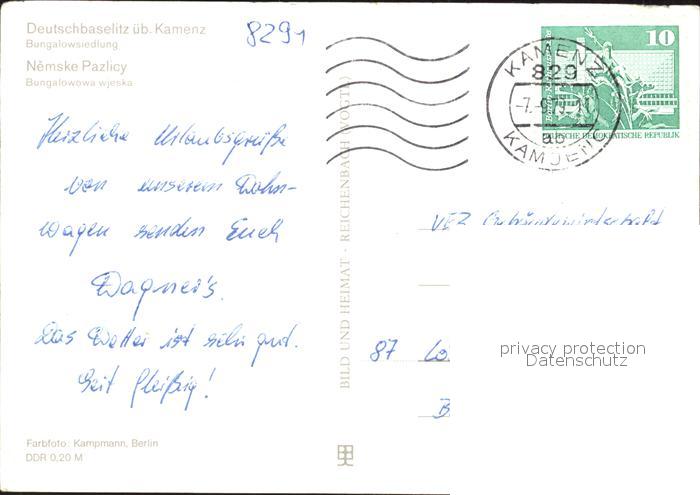 Deutschbaselitz üb. Kamenz
Bungalowsiedlung
Němske Pazlicy
Bungalowowa wjeska
8291
Herzliche Urlaubsgrüße
von unserem Wohn-
wagen senden Euch
Wagner's.
Das Wetter ist sehr gut.
Seit fleißig!
Farbfoto: Kampmann, Berlin
DDR 0,20 M
BILD UND HEIMAT · REICHENBACH (VOGTL)
KAMENZ
829
KAMJENC
10
DEUTSCHE DEMOKRATISCHE REPUBLIK
87 Lö
B
privacy protection
Datenschutz